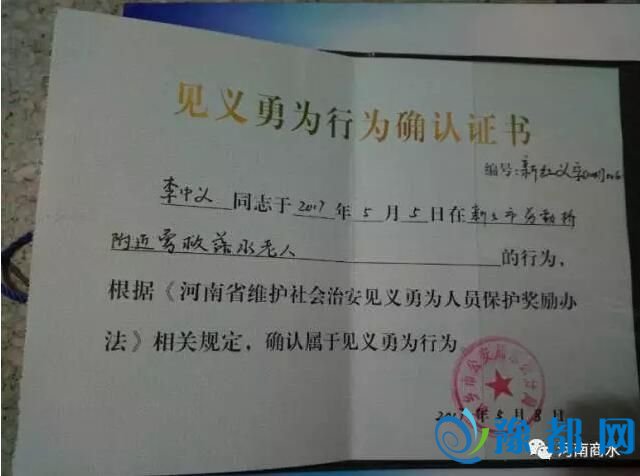 见义勇为行为确认证书
编号:新红义字
李中义 同志于 2017 年 5 月 5 日在 新乡市劳动桥
附近勇救落水老人 的行为、
根据《河南省维护社会治安见义勇为人员保护奖励办
法》相关规定，确认属于见义勇为行为。
乡市公安局
2017年5月8日
豫都网
河南商水